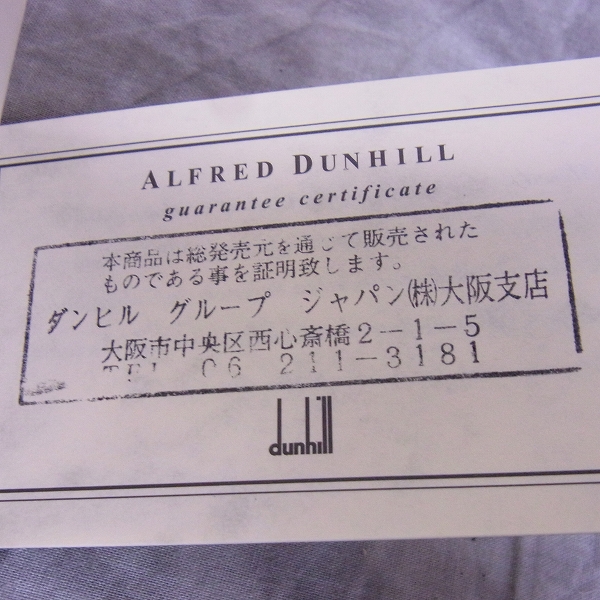 ALFRED DUNHILL
guarantee certificate
本商品は総発売元を通じて販売された
ものである事を証明致します。
ダンヒル グループ ジャパン(株)大阪支店
大阪市中央区西心斎橋2-1-5
TEL 06 211-3181
dunhill